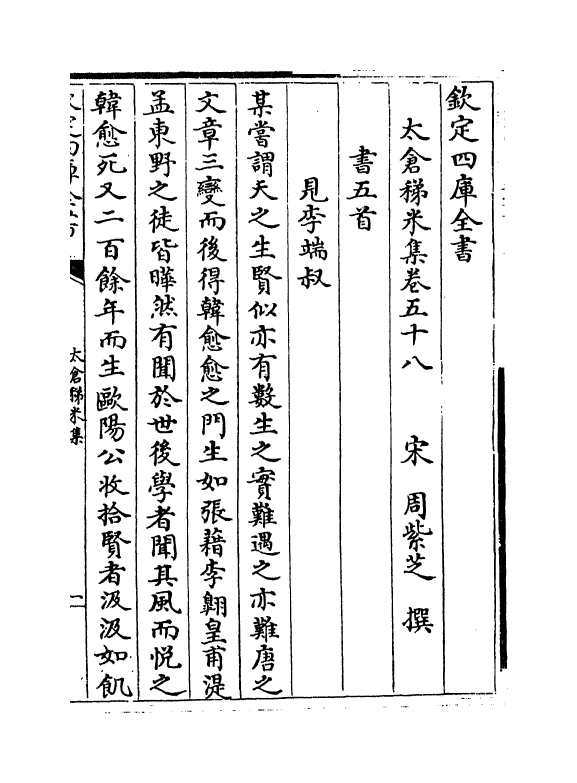 欽定四庫全書
太倉稊米集卷五十八　宋　周紫芝　撰
書五首
見李端叔
某嘗謂天之生賢似亦有數生之實難遇之亦難唐之
文章三變而後得韓愈愈之門生如張藉李翺皇甫湜
孟東野之徒皆曄然有聞於世後學者聞其風而悅之
韓愈死又二百餘年而生歐陽公收拾賢者汲汲如飢
欽定四庫全書
太倉稊米集
一